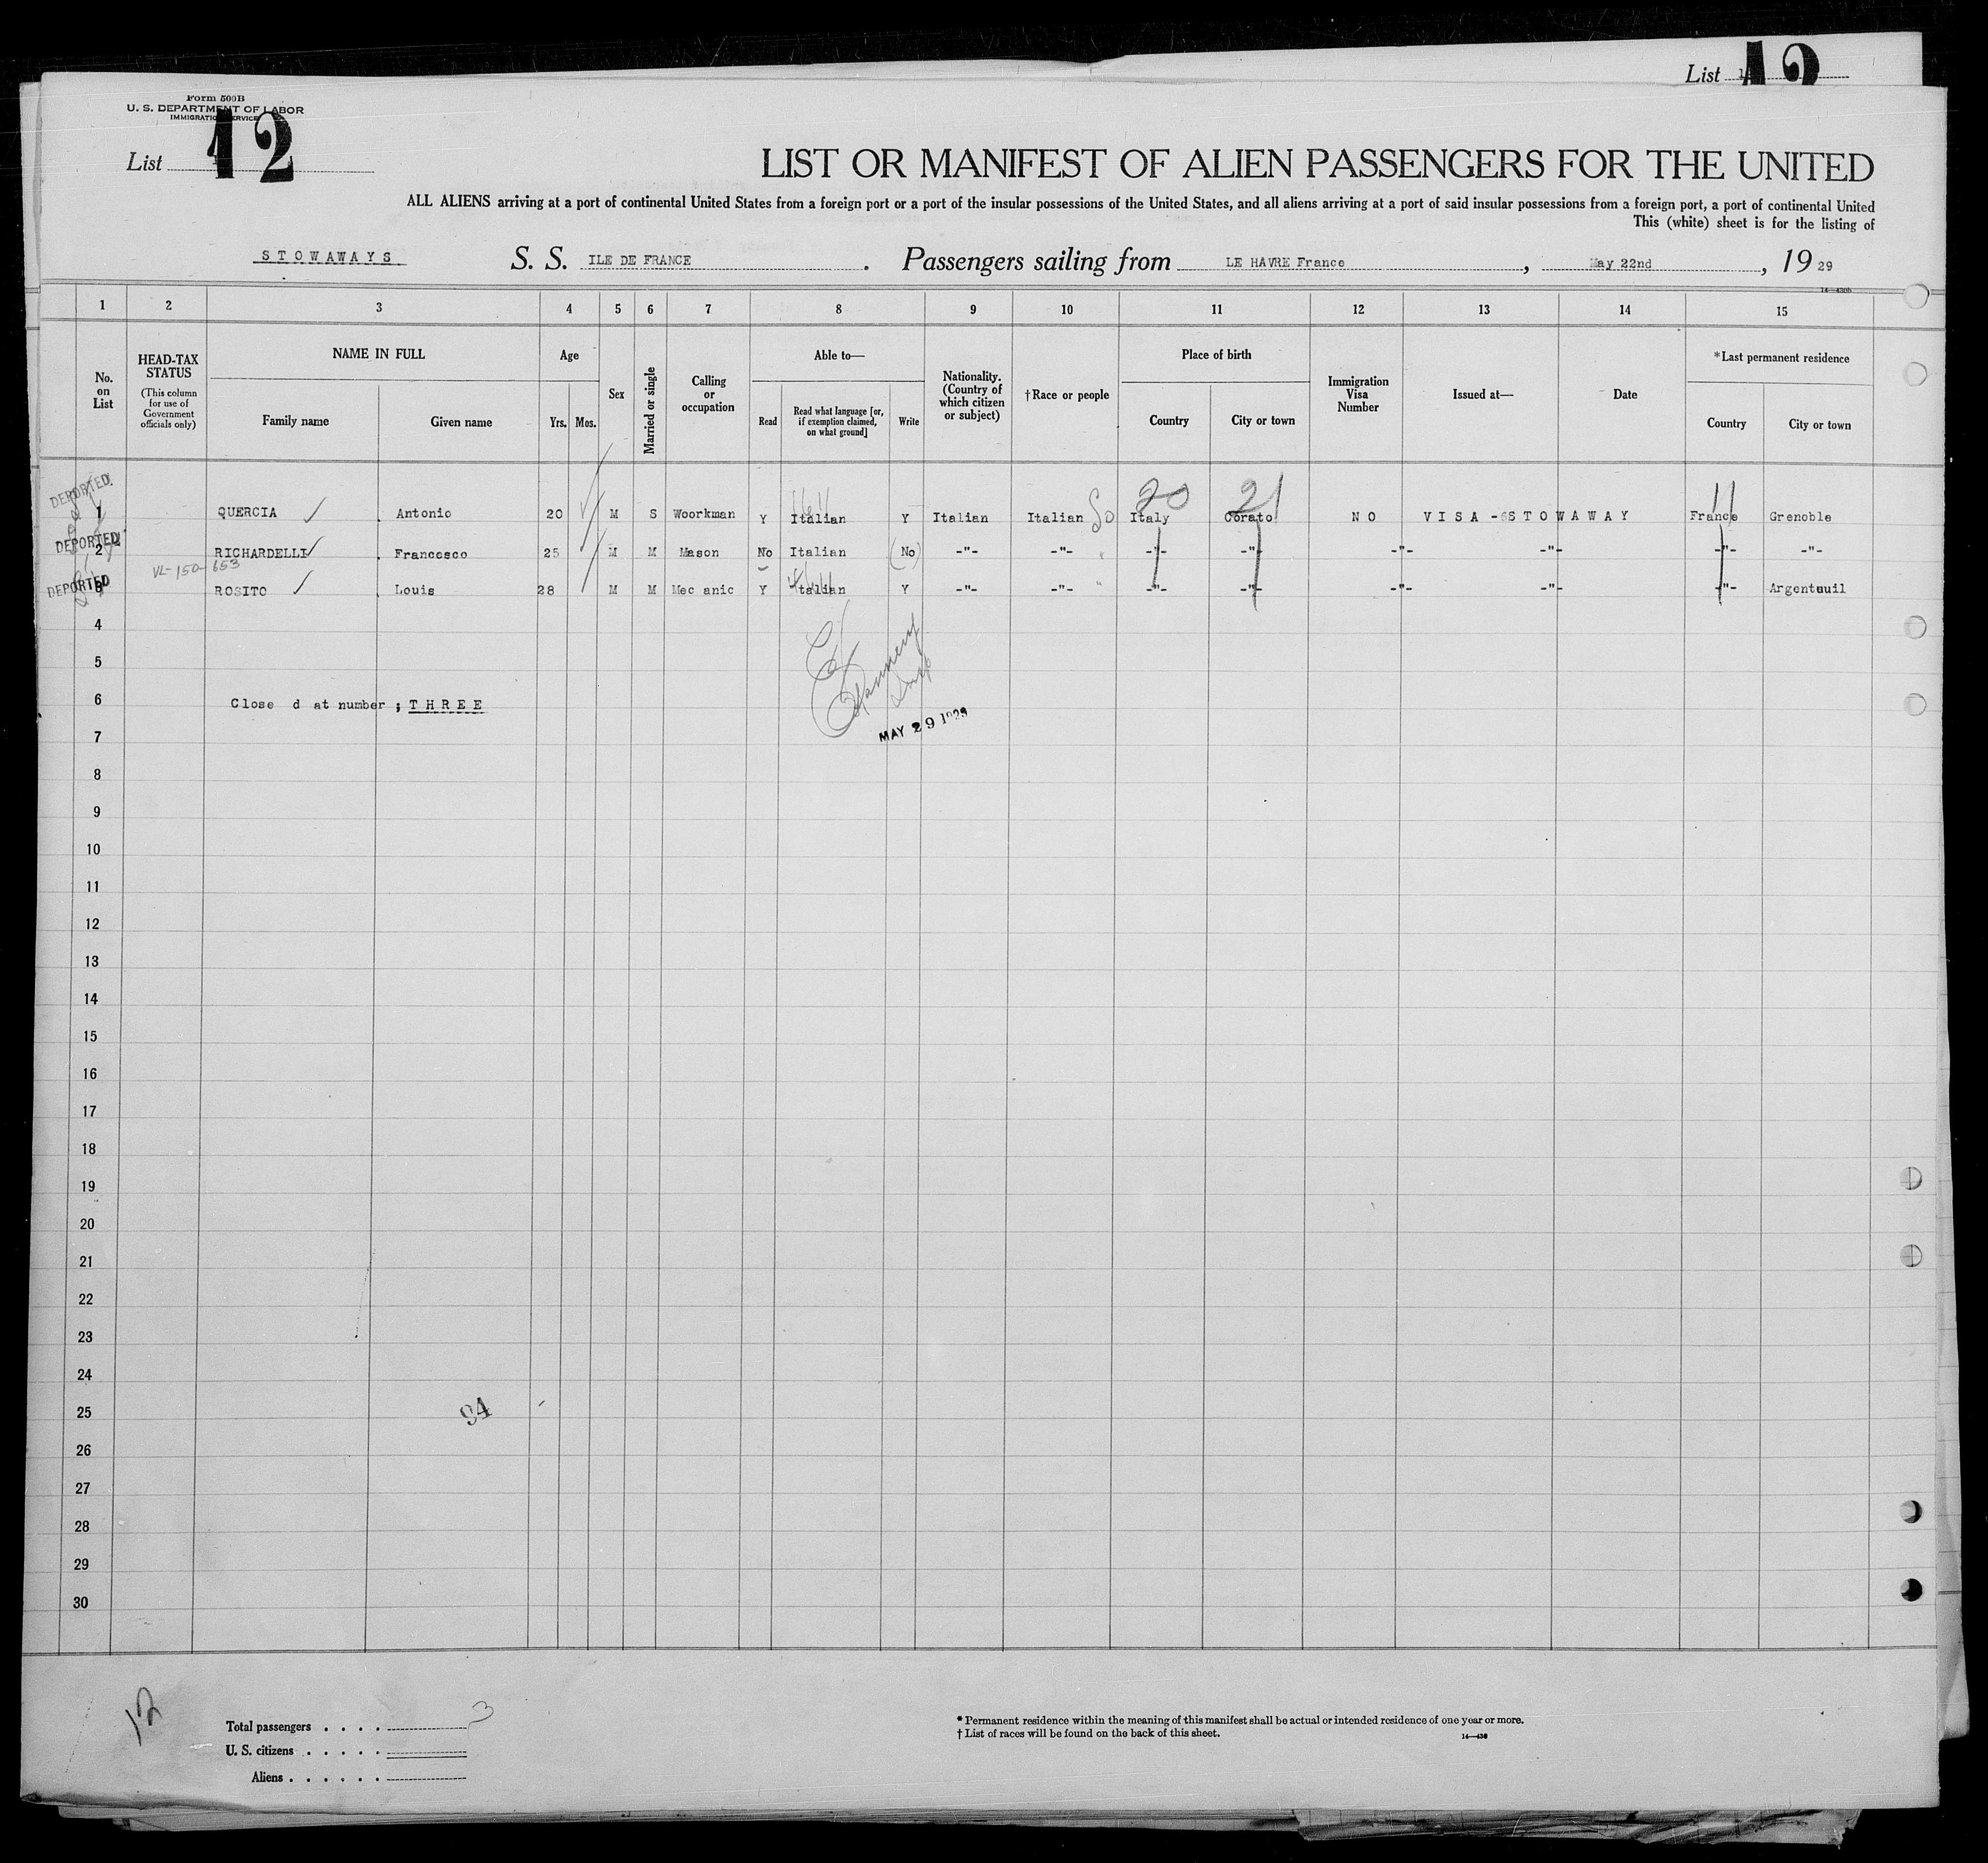 List 12
Form 500B
U. S. DEPARTMENT OF LABOR
IMMIGRATION SERVICE
List 12
LIST OR MANIFEST OF ALIEN PASSENGERS FOR THE UNITED
ALL ALIENS arriving at a port of continental United States from a foreign port or a port of the insular possessions of the United States, and all aliens arriving at a port of said insular possessions from a foreign port, a port of continental United
This (white) sheet is for the listing of
STOWAWAYS S. S. ILE DE FRANCE . Passengers sailing from LE HAVRE France , May 22nd , 19 29
1 2 3 4 5 6 7 8 9 10 11 12 13 14 15
No. on List
HEAD-TAX STATUS (This column for use of Government officials only)
NAME IN FULL
Family name Given name
Age
Yrs. Mos.
Sex
Married or single
Calling or occupation
Able to—
Read
Read what language [or, if exemption claimed, on what ground]
Write
Nationality. (Country of which citizen or subject)
†Race or people
Place of birth
Country City or town
Immigration Visa Number
Issued at—
Date
*Last permanent residence
Country City or town
DEPORTED 1 QUERCIA Antonio 20 M S Woorkman Y Italian Y Italian Italian So Italy 20 Corato 21 NO VISA - STOWAWAY France 11 Grenoble
DEPORTED 2 RICHARDELLI Francesco 25 M M Mason No Italian (No) -"- -"- " -"- -"- -"- -"- -"- -"-
VL-150-653
DEPORTED 3 ROSITO Louis 28 M M Mec anic Y Italian Y -"- -"- " -"- -"- -"- -"- -"- Argenteuil
4
5
6 Close d at number ; THREE
MAY 29 1929
7
8
9
10
11
12
13
14
15
16
17
18
19
20
21
22
23
24
25 94
26
27
28
29
30
12
Total passengers . . . . 3
U. S. citizens . . . . .
Aliens . . . . . .
* Permanent residence within the meaning of this manifest shall be actual or intended residence of one year or more.
† List of races will be found on the back of this sheet.
14—430